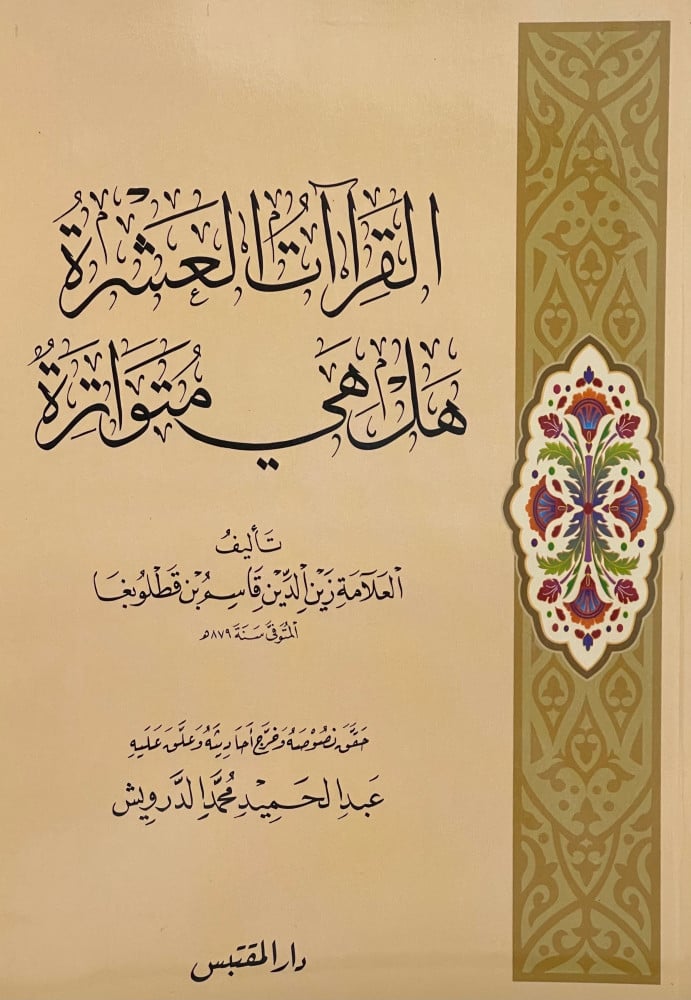 القِرَاآتُ العَشْرَةُ
هَلْ هِيَ مُتَوَاتِرَةٌ
تَأليفُ
العَلَّامَةِ زَيْنِ الدِّيْنِ قَاسِمُ بْنِ قَطْلُوبُغَا
المُتَوَفَّى سَنَةَ ٨٧٩هـ
حَقَّقَ نُصُوصَهُ وَخَرَّجَ أَحَادِيثَهُ وَعَلَّقَ عَلَيهِ
عَبدِ الحَمِيْدِ مُحَمَّدِ الدَّرويش
دار المقتبس